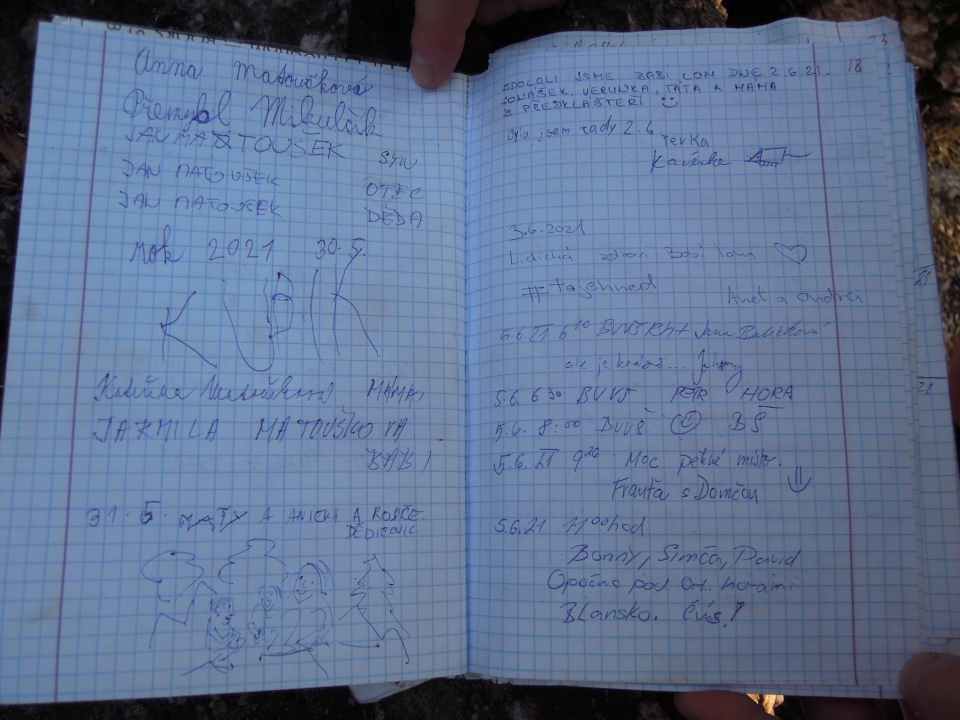 Anna Matoušková
Přemysl Mikulčík
JAN MATOUŠEK SYN
JAN MATOUSEK OTEC
JAN MATOUSEK DĚDA
rok 2021 30.5.
KUBIK
Matoušková MAMA
JARMILA MATOUŠKOVA
BABI
31.5. MATY A ANIČKA A RODIČE
DĚDICOVIC
18
ZDOLALI JSME BABI LOM DNE 2.6.21.
JONÁŠEK VERUNKA, TATA A MAMA
Z PŘEDKLÁŠTEŘÍ
Byla jsem tady 2.6.
Terka
Kačenka
3.6.2021
zdraví Babí lom
#tojehned
Anet a Ondra
5.6.21 6
ale je krásně...
5.6. 6 30 BUVŠ PETR HORA
5.6. 8:00 BUVŠ BŠ
5.6.21 9 Moc pěkné místo.
Franta s Domčou
5.6.21 11 00 hod
Bonny, Simča, David
Opočno pod Orl. horami
Blansko. Čus!